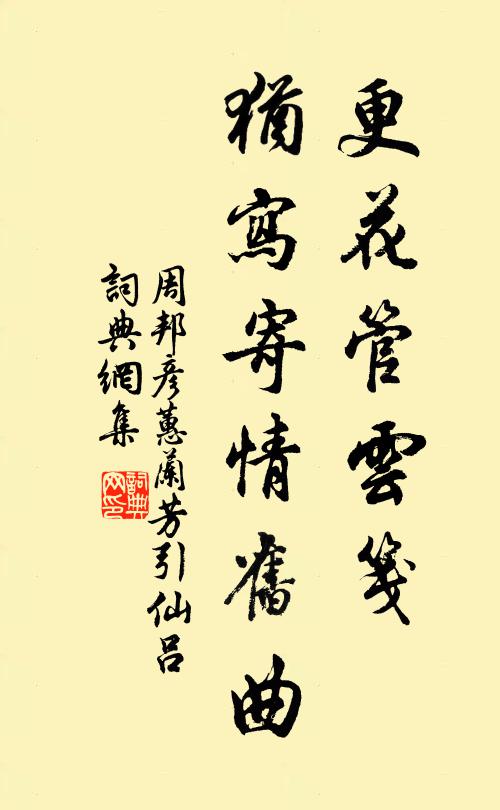 更花管雲箋
猶寫寄情舊曲
周邦彥蕙蘭芳引仙呂
詞典網集
詞典网印